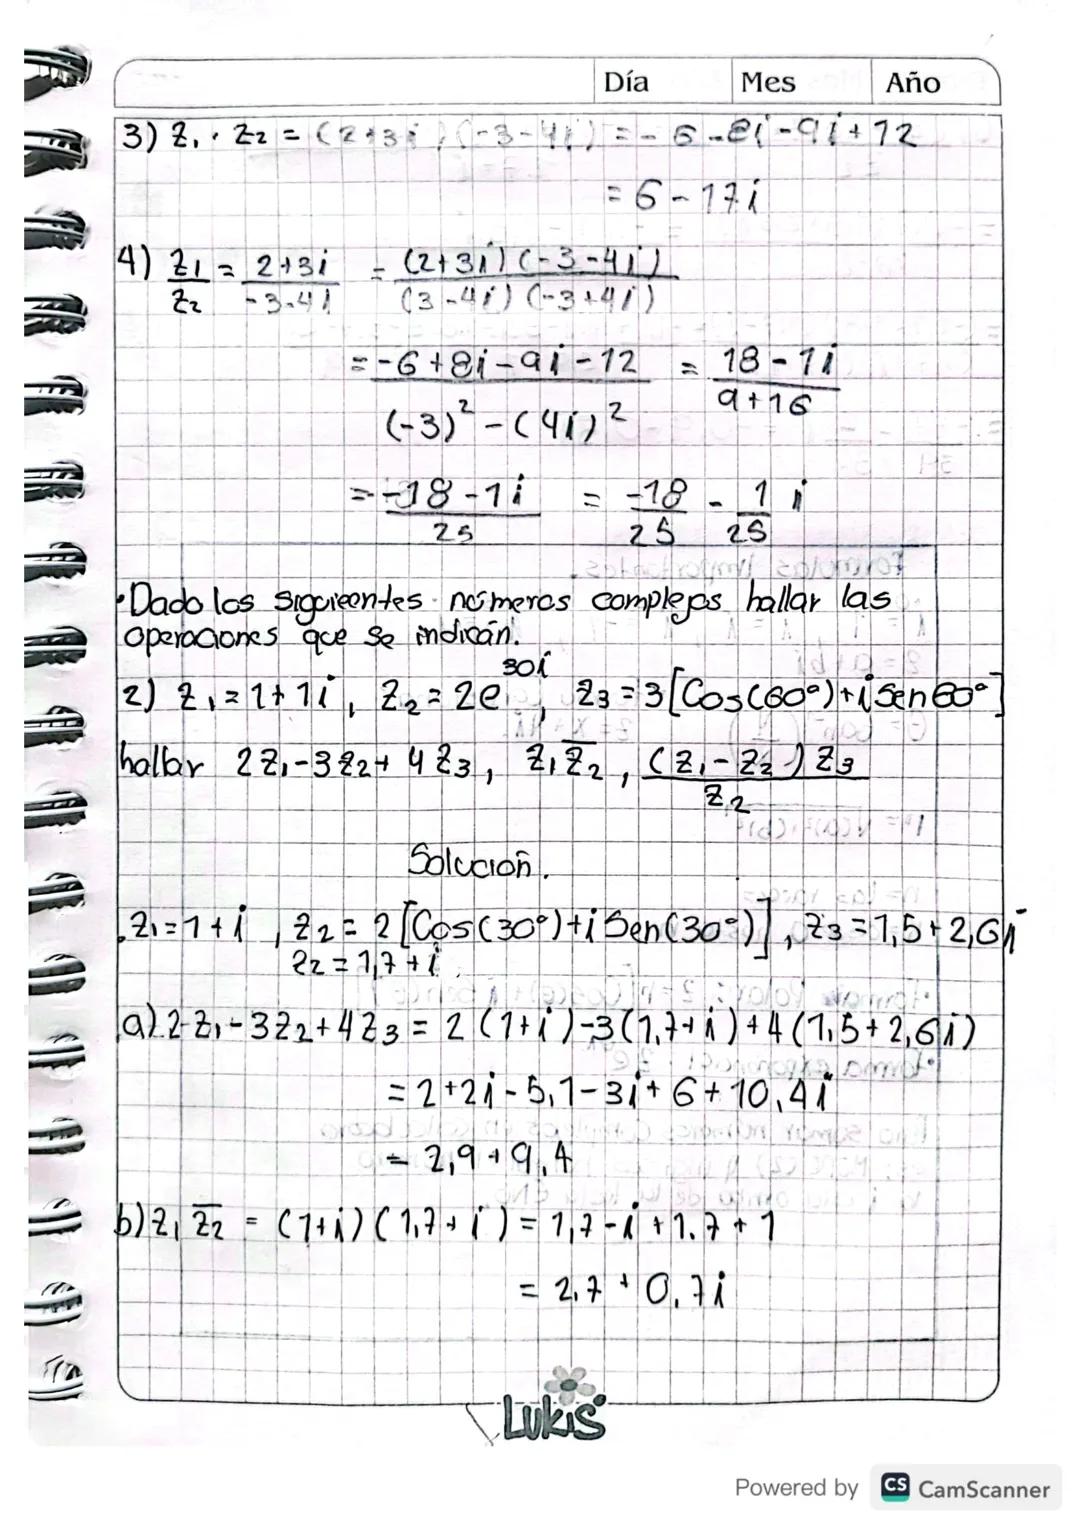 Día Mes Año
3) z₁ · z₂ = (2+3i)(-3-4i) = -6-8i-9i+12
= 6-17i
4) z₁/z₂ = 2+3i/-3-4i = (2+3i)(-3-4i)/(3-4i)(-3+4i)
= -6+8i-9i-12/(-3)²-(4i)² = 18-1i/9+16
= -18-1i/25 = -18/25 - 1/25 i
• Dado los siguieentes números complejos hallar las
operaciones que se indican.
2) z₁=1+1i, z₂=2e^30i, z₃=3[Cos(60°)+iSen60°]
hallar 2z₁-3z₂+4z₃, z₁z̅₂, (z₁-z₂)z₃/z₂
Solución.
. z₁=1+i, z₂=2[Cos(30°)+iSen(30°)], z₃=1,5+2,6i
z₂=1,7+i.
a) 2·z₁-3z₂+4z₃ = 2(1+i)-3(1,7+i)+4(1,5+2,6i)
= 2+2i-5,1-3i+6+10,4i
= 2,9+9,4
b) z₁z̅₂ = (1+i)(1,7+i) = 1,7-i+1.7+1
= 2,7+0,7i
LUKIS
Powered by CS CamScanner